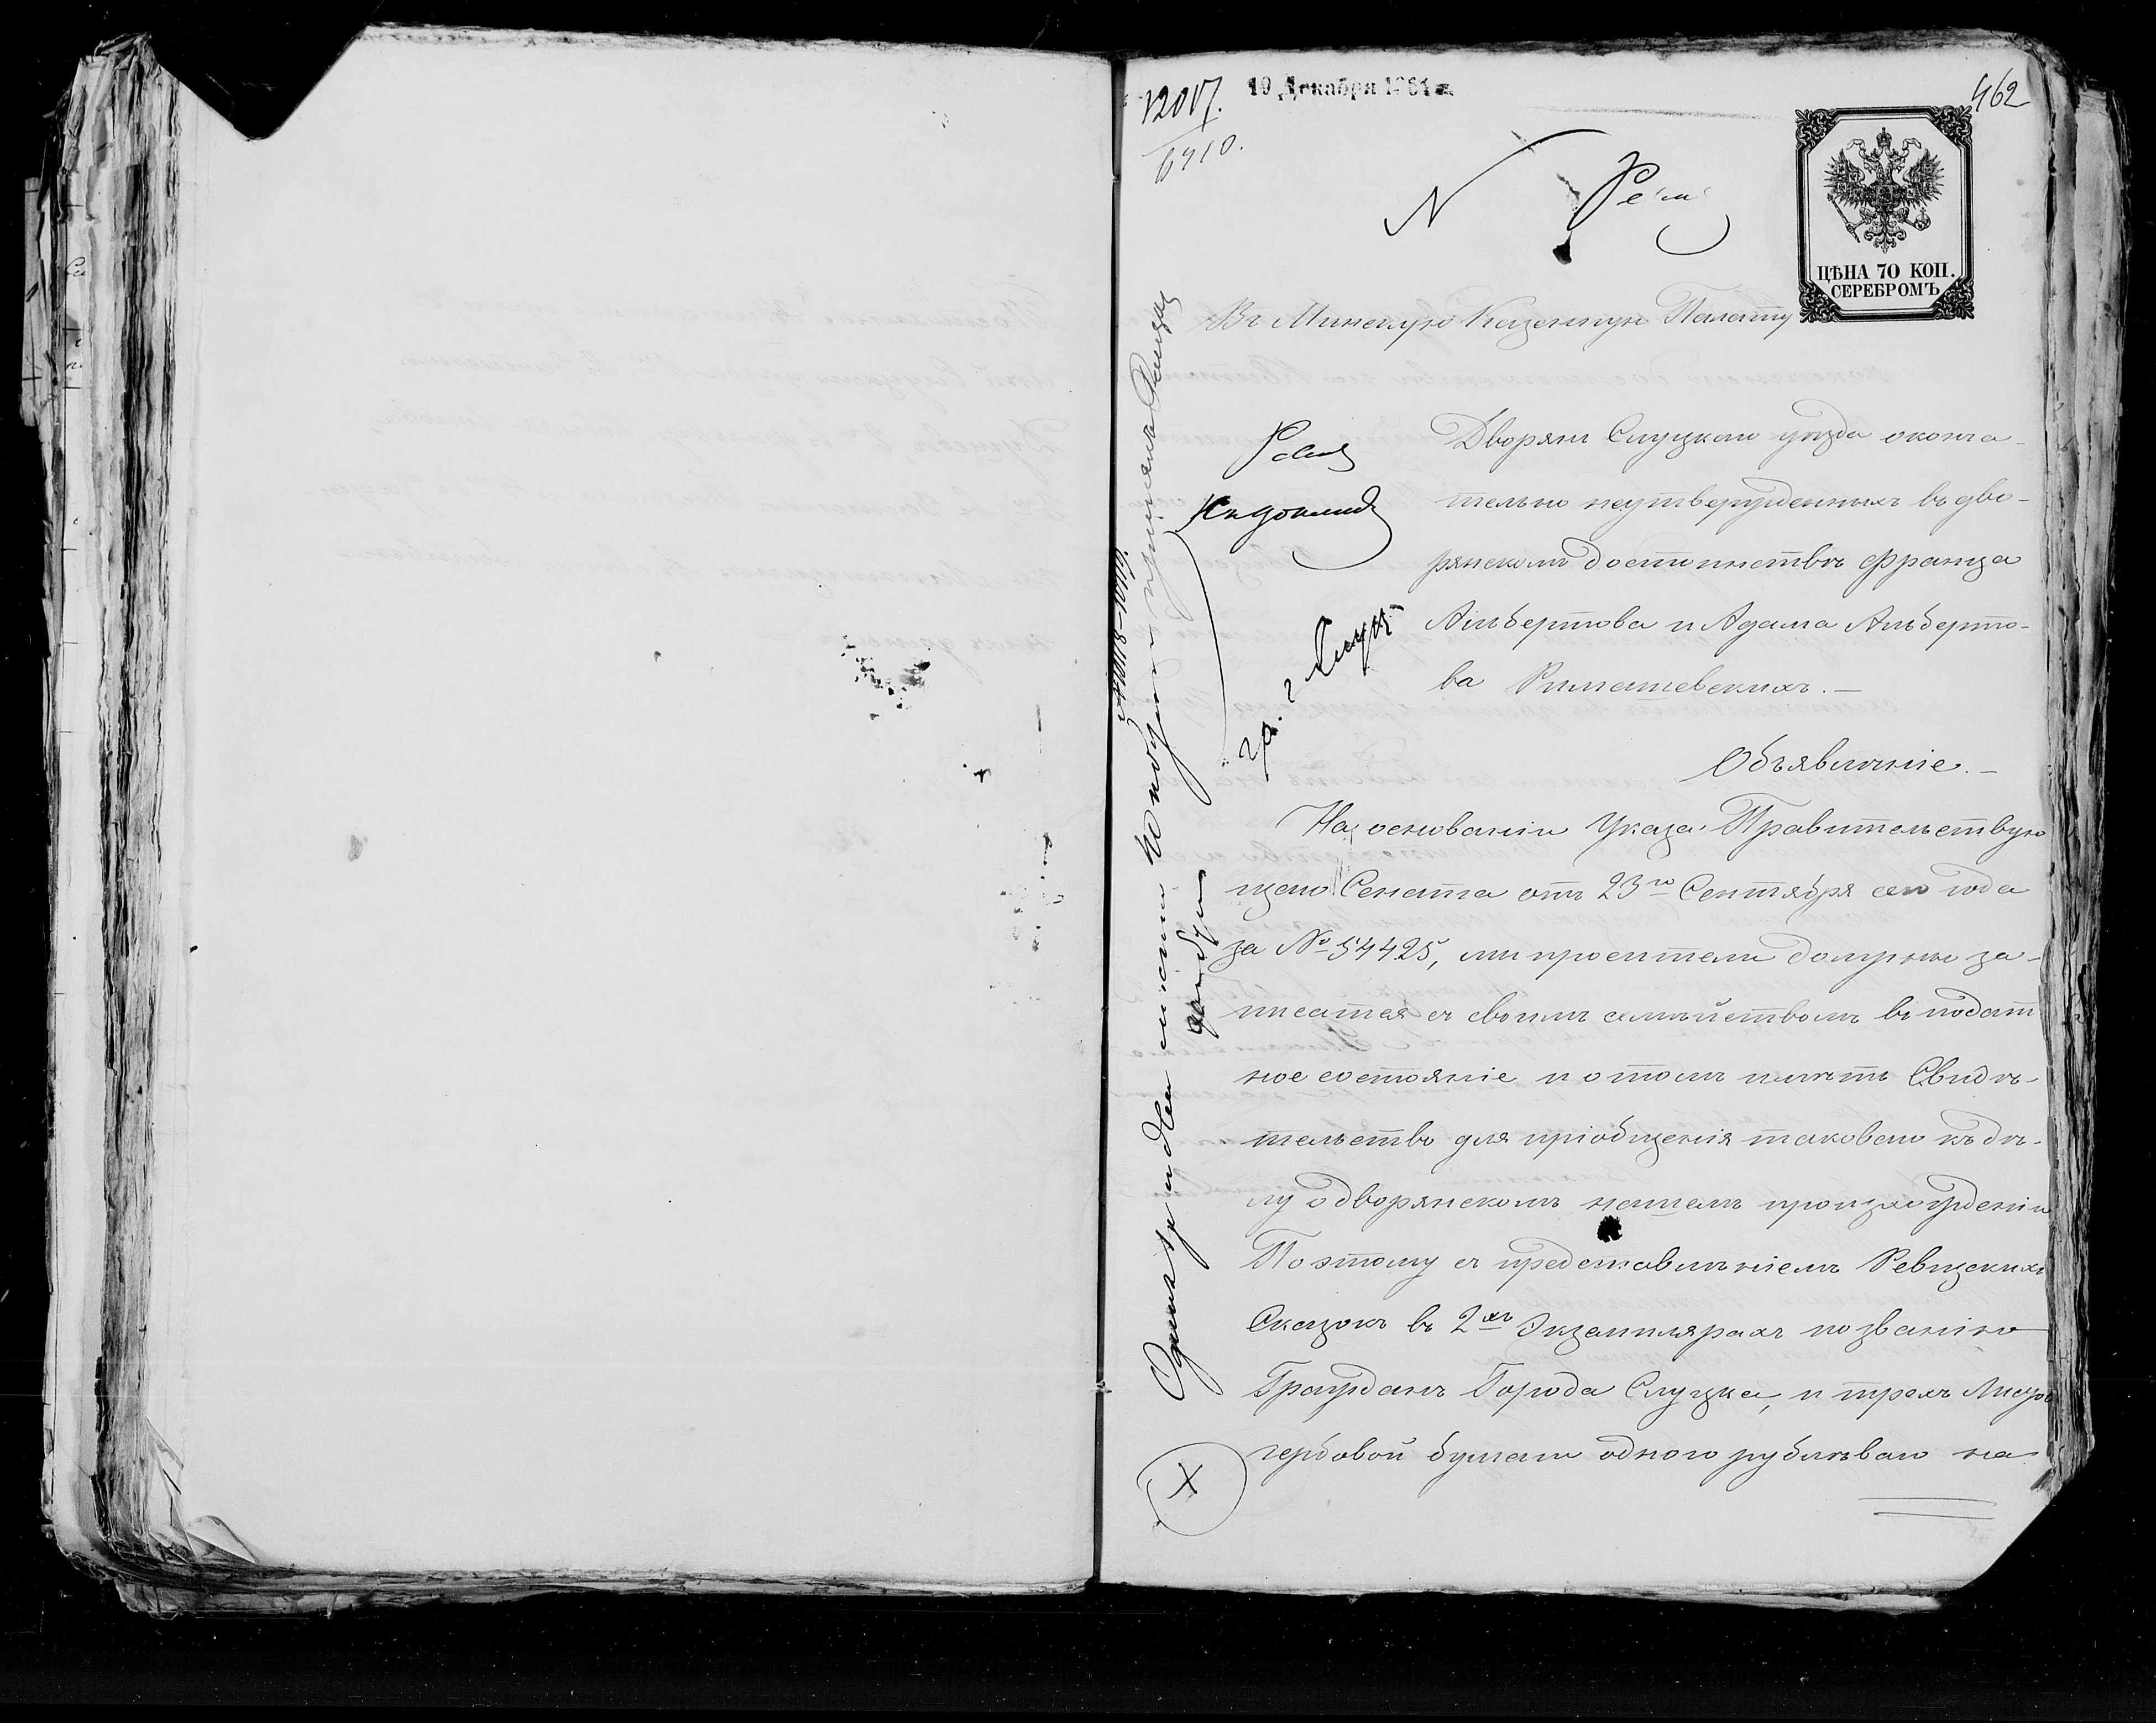 12017.
6910.
19 Декабря 1864 г.
462
ЦѢНА 70 КОП.
СЕРЕБРОМЪ
Въ Минскую Казенную Палату
Дворянъ Слуцкаго уѣзда оконча-
тельно неутвержденныхъ въ дво-
рянскомъ достоинствѣ Франца
Альбертова и Адама Альберто-
ва Римашевскихъ.—
Объявленіе.—
На основаніи Указа Правительствую
щаго Сената отъ 23го Сентября сего года
за № 54425, мы просители должны за-
писатся съ своимъ семѣйствомъ въ подат
ное состояніе и о томъ имѣть Свидѣ-
тельство для пріобщенія таковаго къ дѣ-
лу о дворянскомъ нашемъ происхожденіи
Поэтому съ представлѣніемъ Ревизскихъ
Сказокъ въ 2хъ Экземплярахъ по званію
Гражданъ Города Слуцка, и трехъ Листовъ
гербовой бумаги одного рублѣваго на